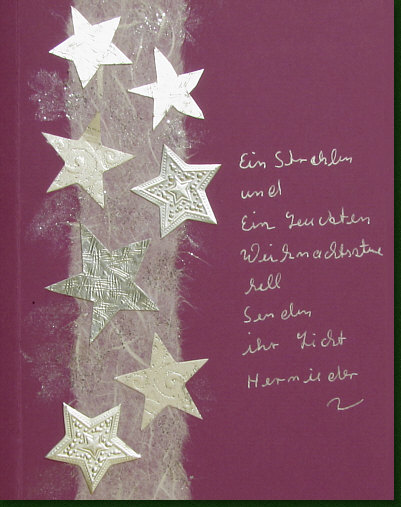 Ein Strahlen
und
Ein Leuchten
Weihnachtssterne
hell
Senden
ihr Licht
Hernieder